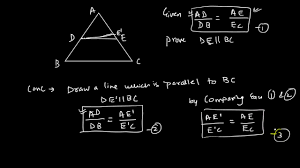 A
D
E'
E
B
C
Given AD/DB = AE/EC - ①
prove DE||BC
Conc - Draw a line which is parallel to BC
DE'||BC
AD/DB = AE'/E'C - ②
by Comparing Eqn ① & ②
AE'/E'C = AE/EC - ③